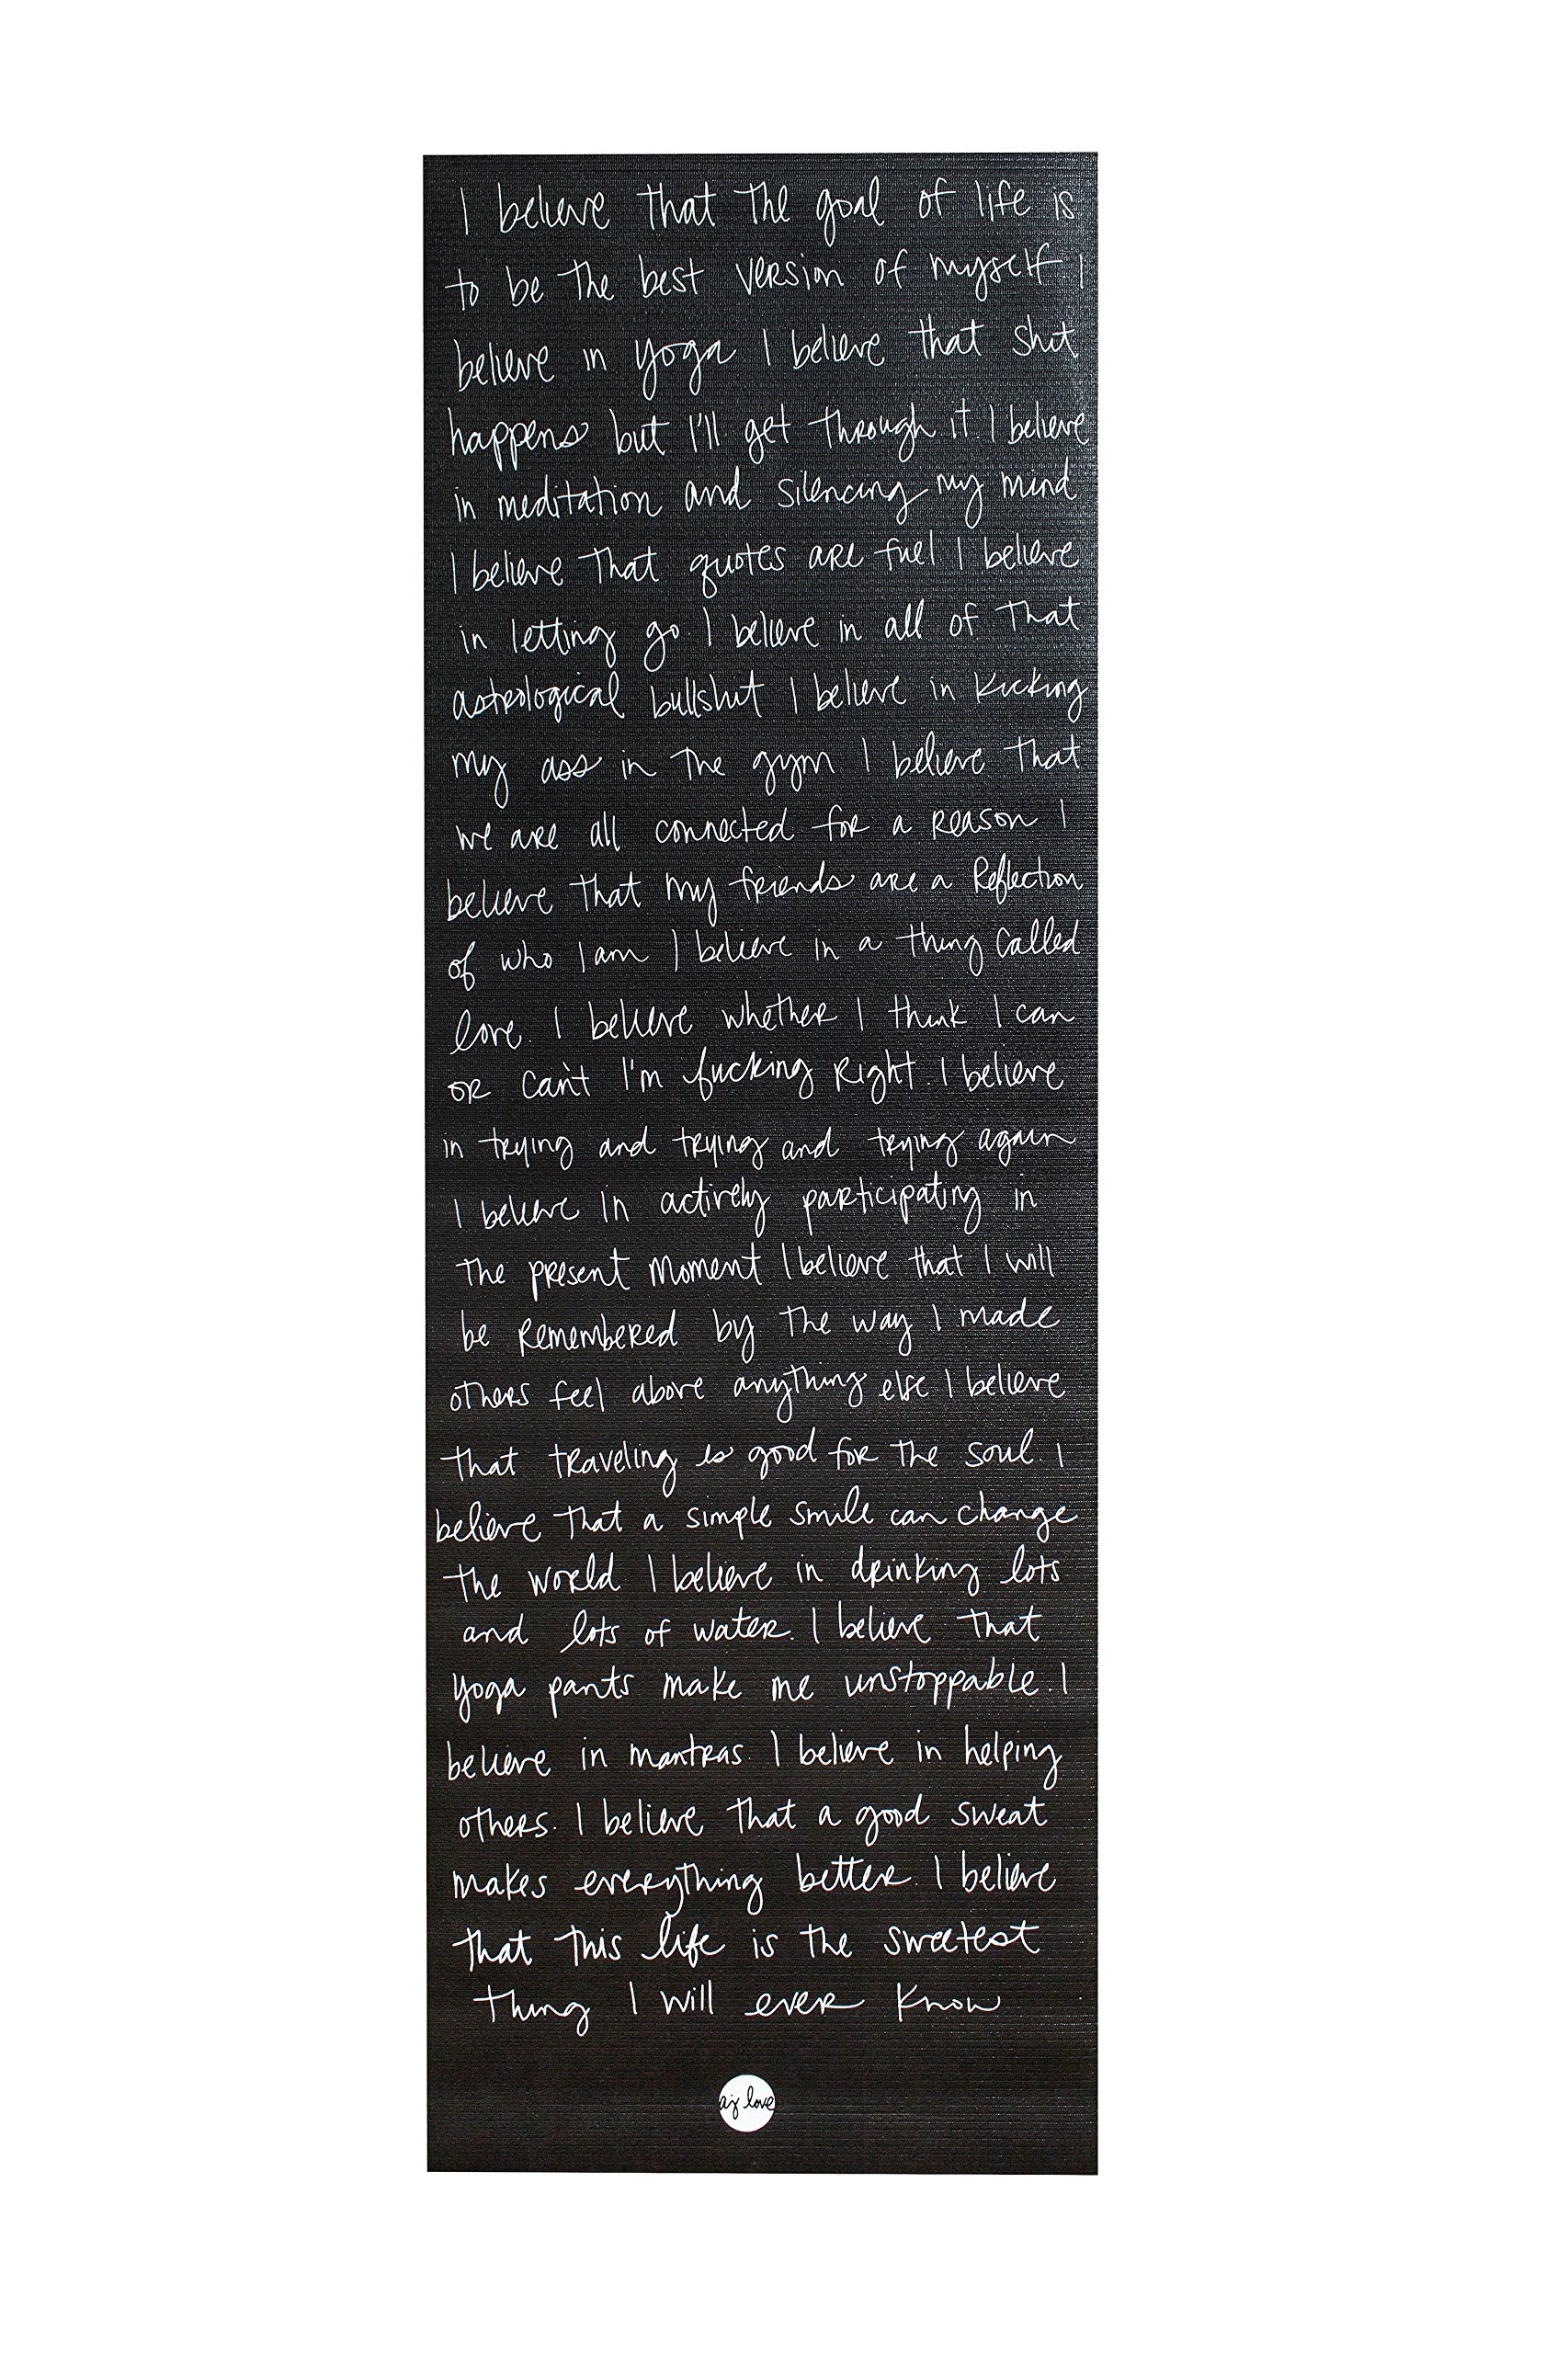 I believe that the goal of life is
to be the best version of myself I
believe in yoga I believe that shit
happens but I'll get through it. I believe
in meditation and silencing my mind
I believe that quotes are fuel I believe
in letting go. I believe in all of that
astrological bullshit I believe in kicking
my ass in the gym I believe that
we are all connected for a reason I
believe that my friends are a reflection
of who I am I believe in a thing called
love. I believe whether I think I can
or can't I'm fucking right. I believe
in trying and trying and trying again
I believe in actively participating in
the present moment I believe that I will
be remembered by the way I made
others feel above anything else I believe
that traveling is good for the soul. I
believe that a simple smile can change
the world I believe in drinking lots
and lots of water. I believe that
yoga pants make me unstoppable. I
believe in mantras. I believe in helping
others. I believe that a good sweat
makes everything better. I believe
that this life is the sweetest
thing I will ever know
aj love